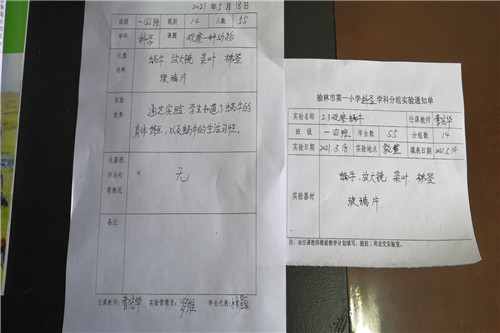 2021年5月18日
班级 一四班 组别 14 人数 55
学科 科学 课题 观察一种动物
仪器材料 蜗牛 放大镜 菜叶 棉签
玻璃片
实验效果 通过实验,学生知道了蜗牛的
身体特征,以及蜗牛的生活习性。
仪器损坏与处理情况 无
备注
任课教师: 实验管理员: 学生代表:
榆林市第一小学科学学科分组实验通知单
实验名称 2.3观察蜗牛 任课教师
班级 一四班 学生数 55 分组数 14
实验日期 2021.5.18 实验地点 教室 填表日期 2021.5.14
实验器材 蜗牛 放大镜 菜叶 棉签
玻璃片
注:由任课教师根据教学计划填写,提前1周送交实验室。